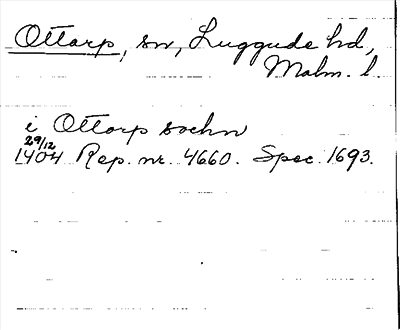 Ottarp, sn, Luggude hd,
Malm. l.
i Ottarp sochn
29/12
1404 Rep. nr. 4660. Spec. 1693.